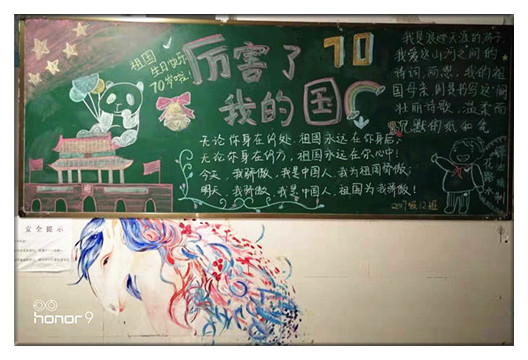 祖国
生日快乐
70岁啦!
厉害了
我的国
70
无论你身在何处,祖国永远在你身后;
无论你身在何方,祖国永远在你心中!
今天,我骄傲,我是中国人,我为祖国骄傲;
明天,我骄傲,我是中国人,祖国为我骄傲!
我是浪迹天涯的游子
我爱这山河之间的
诗词,而您,我的祖
国母亲,则是抒写这一阙
壮丽诗歌,温柔而
沉默的纸和笔
安全提示
honor 9